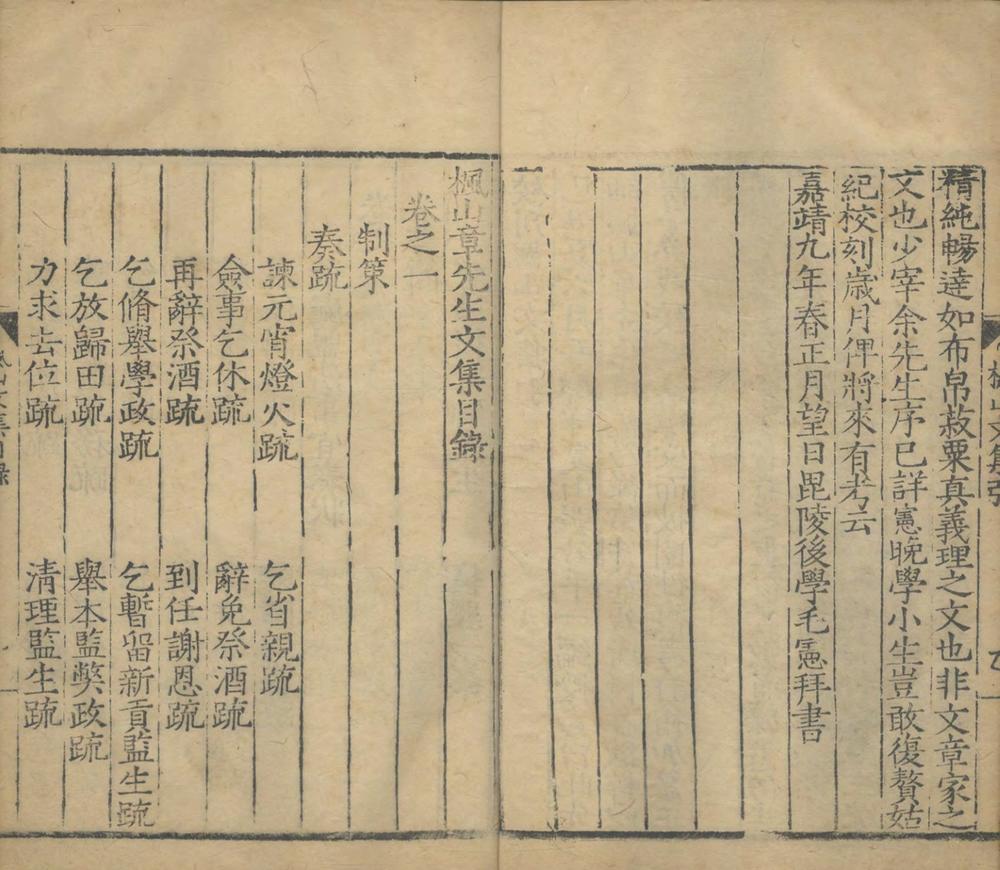 精純暢達如布帛菽粟真義理之文也非文章家之
文也少宰余先生序已詳憲晚學小生豈敢復贅姑
紀校刻歲月俾將來有考云
嘉靖九年春正月望日毘陵後學毛憲拜書
楓山章先生文集目錄
卷之一
制策
奏疏
諫元宵燈火疏 乞省親疏
僉事乞休疏 辭免祭酒疏
再辭祭酒疏 到任謝恩疏
乞脩舉學政疏 乞暫留新貢監生疏
乞放歸田疏 舉本監獘政疏
力求去位疏 清理監生疏